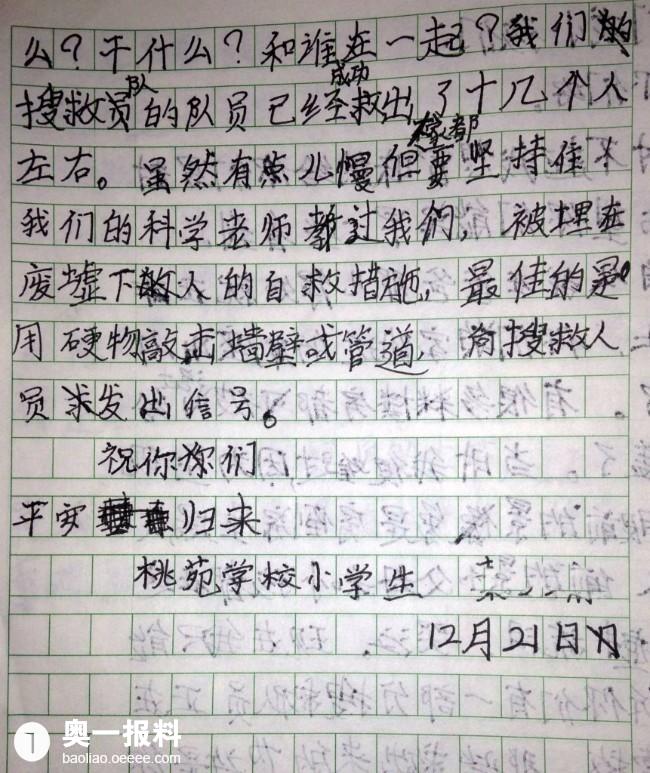 么？干什么？和谁在一起？我们的
搜救员队的队员已经成功救出了十几个人
左右。虽然有点儿慢但大家都要坚持住
我们的科学老师教过我们，被埋在
废墟下 人的自救措施，最佳的是
用硬物敲击墙壁或管道，向搜救人
员求发出信号。
祝你你们
平安 归来
桃苑学校小学生
12月21日
1 奥一报料
baoliao.oeeee.com